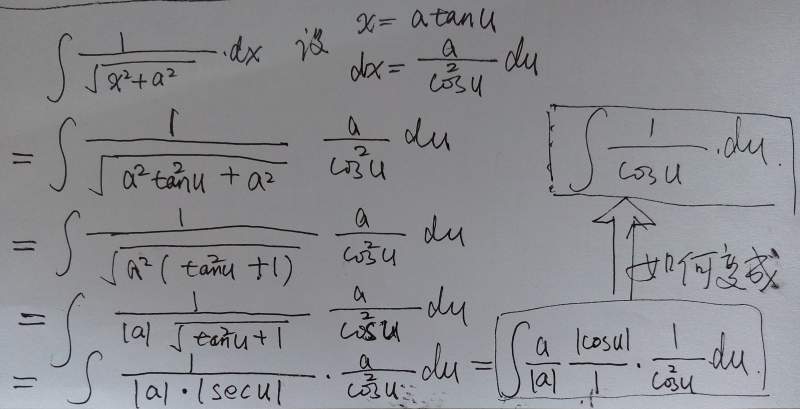 ∫ 1/√(x²+a²) ·dx 设 x = a tan u
dx = a/cos²u du
= ∫ 1/√(a²tan²u + a²) a/cos²u du
= ∫ 1/√(a²(tan²u + 1)) a/cos²u du
= ∫ 1/(|a| √(tan²u + 1)) a/cos²u du
= ∫ 1/(|a|·|sec u|) · a/cos²u du = ∫ a/|a| |cos u|/1 · 1/cos²u du.
如何变成
∫ 1/cos u ·du.